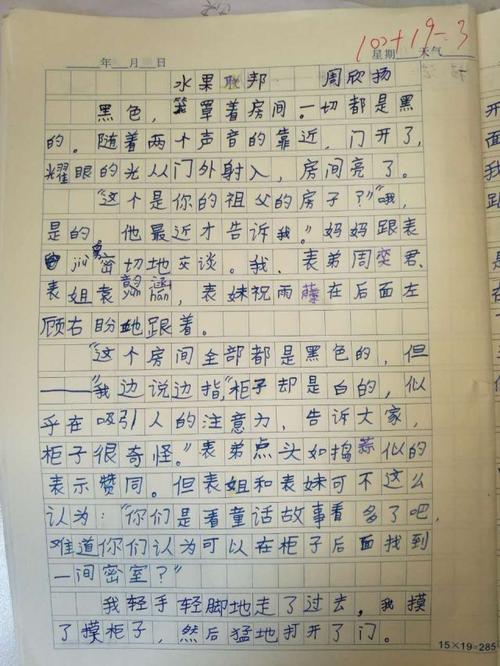 100+19-3
年 月 日 星期 天气
水果联邦 周欣扬
黑色，笼罩着房间。一切都是黑
的。随着两个声音的靠近，门开了，
耀眼的光从门外射入，房间亮了。
“这个是你的祖父的房子？”“哦，
是的，他最近才告诉我。”妈妈跟表
jiu舅密切地交谈。我、表弟周奕君、
表姐袁韵yùn涵hán，表妹祝雨藤在后面左
顾右盼地跟着。
“这个房间全部都是黑色的，但
——”我边说边指，“柜子却是白的，似
乎在吸引人的注意力，告诉大家，
柜子很奇怪。”表弟点头如捣蒜似的
表示赞同。但表姐和表妹可不这么
认为：“你们是看童话故事看多了吧，
难道你们认为可以在柜子后面找到
一间密室？”
我轻手轻脚地走了过去，我摸
了摸柜子，然后猛地打开了门。
15×19=285